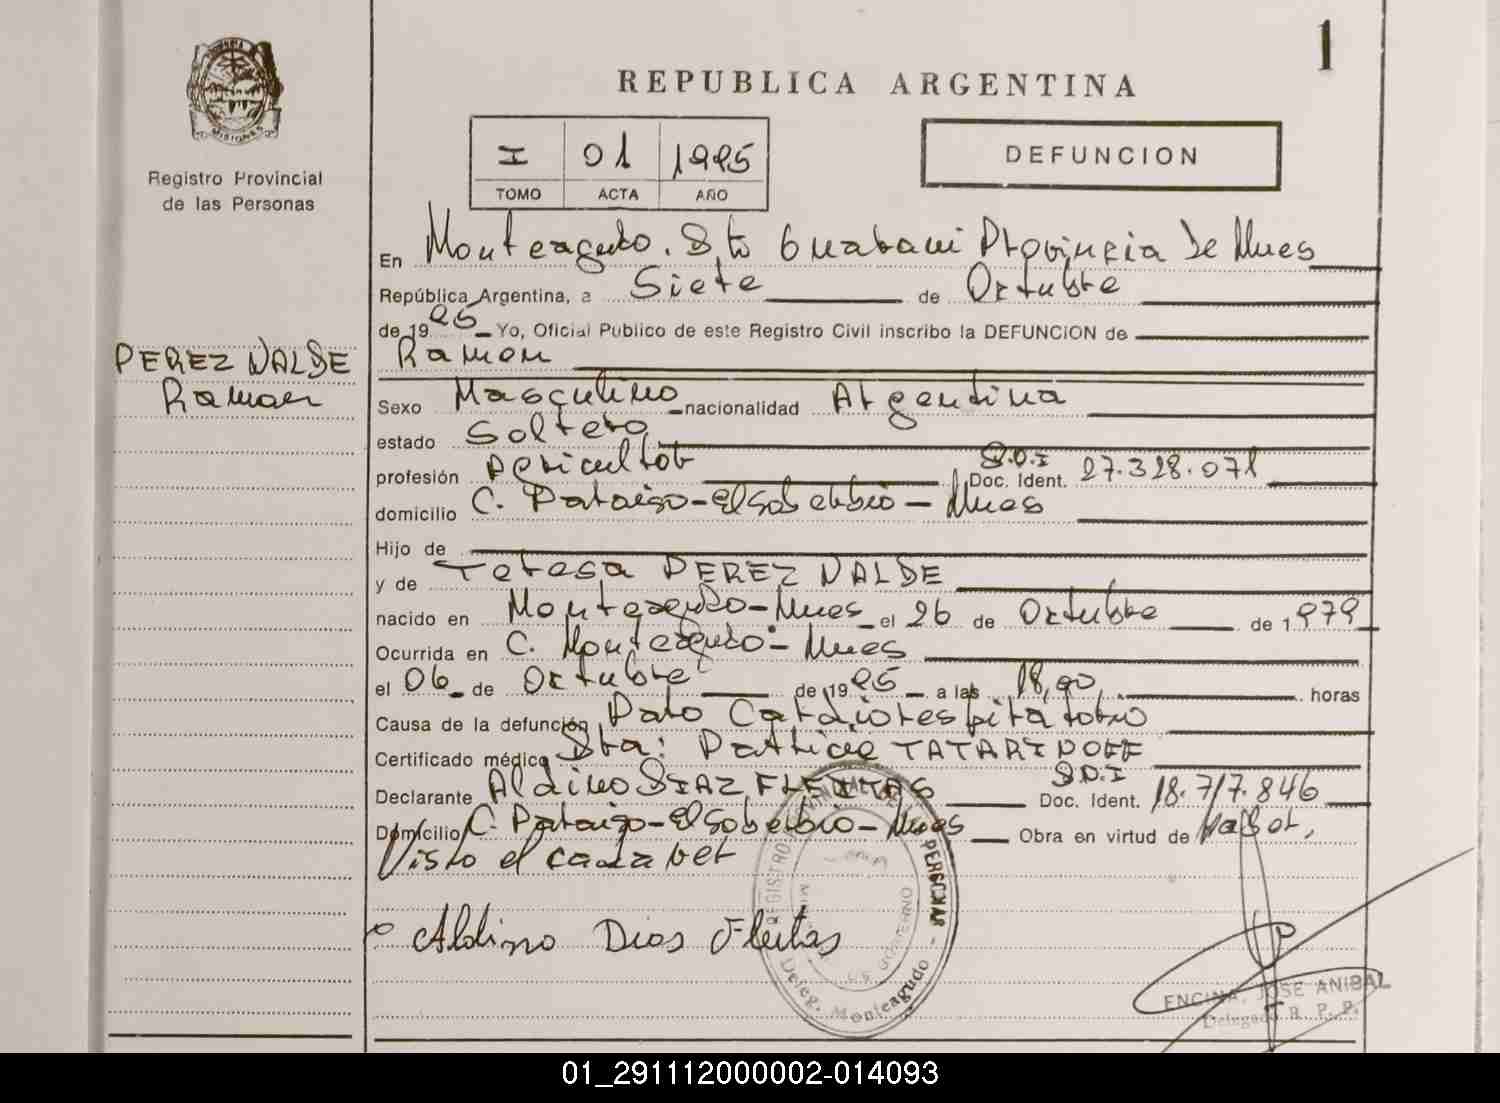 1
PROVINCIA DE
MISIONES
Registro Provincial
de las Personas
REPUBLICA ARGENTINA
I 01 1995
TOMO ACTA AÑO
DEFUNCION
PEREZ NALDE
Ramon
En Monteagudo. Dto Guarani Provincia de Mnes
República Argentina, a Siete de Octubre
de 19 95 Yo, Oficial Publico de este Registro Civil inscribo la DEFUNCION de
Ramon
Sexo Masculino nacionalidad Argentina
estado Soltero
profesión Agricultor D.N.I Doc. Ident. 27.328.071
domicilio C. Paraiso-El Soberbio - Mnes
Hijo de
y de Teresa PEREZ NALDE
nacido en Monteagudo-Mnes el 26 de Octubre de 1979
Ocurrida en C. Monteagudo - Mnes
el 06 de Octubre de 19 95 a las 18,00 horas
Causa de la defunción Paro Cardiorespiratorio
Certificado médico Dra: Patricia
Declarante Aldino DIAZ FLEITAS D.N.I Doc. Ident. 18.717.846
Domicilio C. Paraiso-El Soberbio-Mnes Obra en virtud de Haber,
Visto el cadaver
Aldino Dias Fleitas
REGISTRO PROVINCIAL DE LAS PERSONAS -
GOBIERNO
Deleg. Monteagudo
ENCINA, JOSE ANIBAL
Delegado R. P. P.
01_291112000002-014093